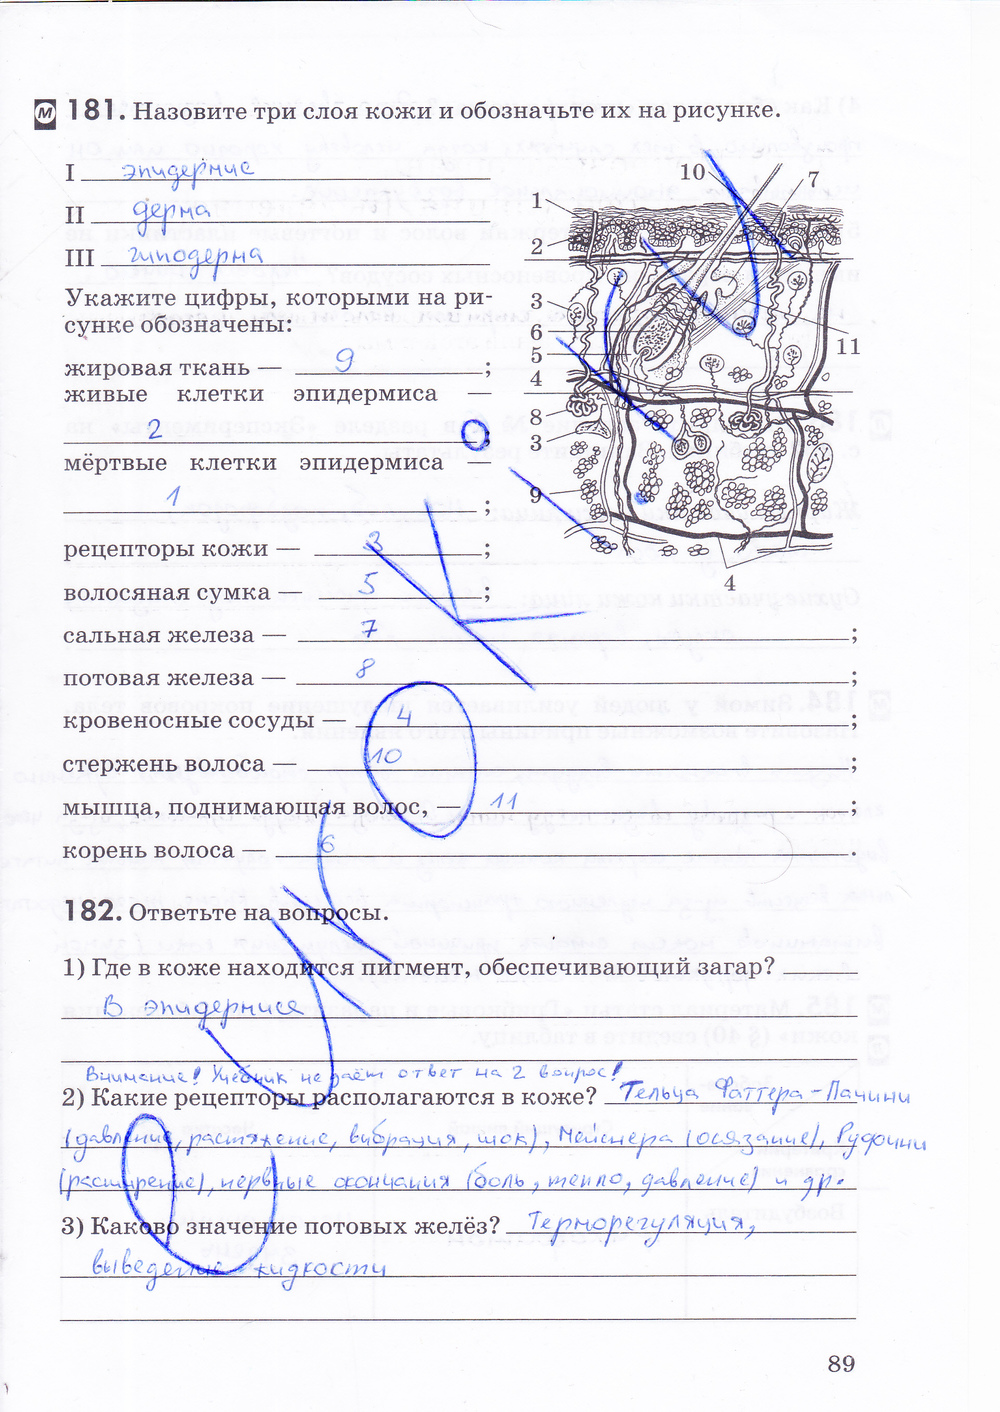 М 181. Назовите три слоя кожи и обозначьте их на рисунке.
I эпидермис
II дерма
III гиподерма
Укажите цифры, которыми на ри-
сунке обозначены:
жировая ткань — 9 ;
живые клетки эпидермиса —
2
мёртвые клетки эпидермиса —
1 ;
рецепторы кожи — 3 ;
волосяная сумка — 5 ;
сальная железа — 7 ;
потовая железа — 8 ;
кровеносные сосуды — 4 ;
стержень волоса — 10 ;
мышца, поднимающая волос, — 11 ;
корень волоса — 6
10
7
1
2
3
6
5
11
4
8
3
9
4
182. Ответьте на вопросы.
1) Где в коже находится пигмент, обеспечивающий загар?
В эпидермисе
Внимание! Учебник не даёт ответ на 2 вопрос!
2) Какие рецепторы располагаются в коже? Тельца Фаттера-Пачини
(давление, растяжение, вибрация, шок), Мейснера (осязание), Руффини
(расширение), нервные окончания (боль, тепло, давление) и др.
3) Каково значение потовых желёз? Терморегуляция,
выведение жидкости
89